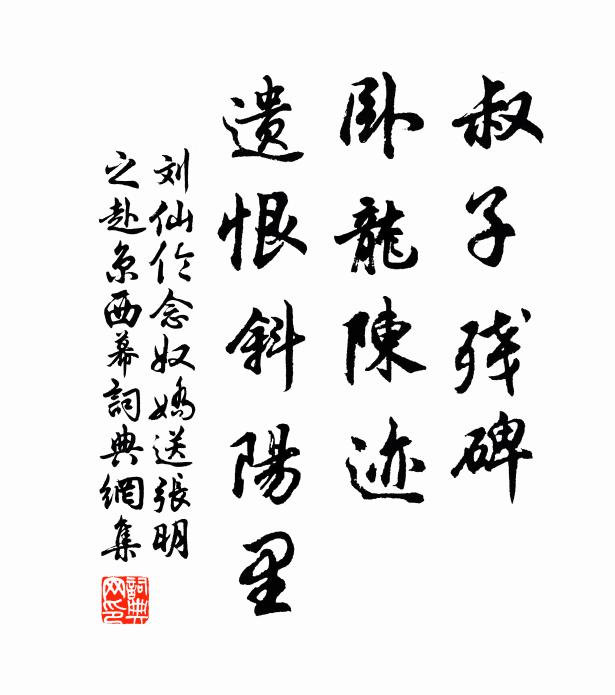 叔子残碑
卧龍陳迹
遗恨斜陽里
刘仙伦念奴嬌送張明
之赴京西幕詞典網集
詞典
网印